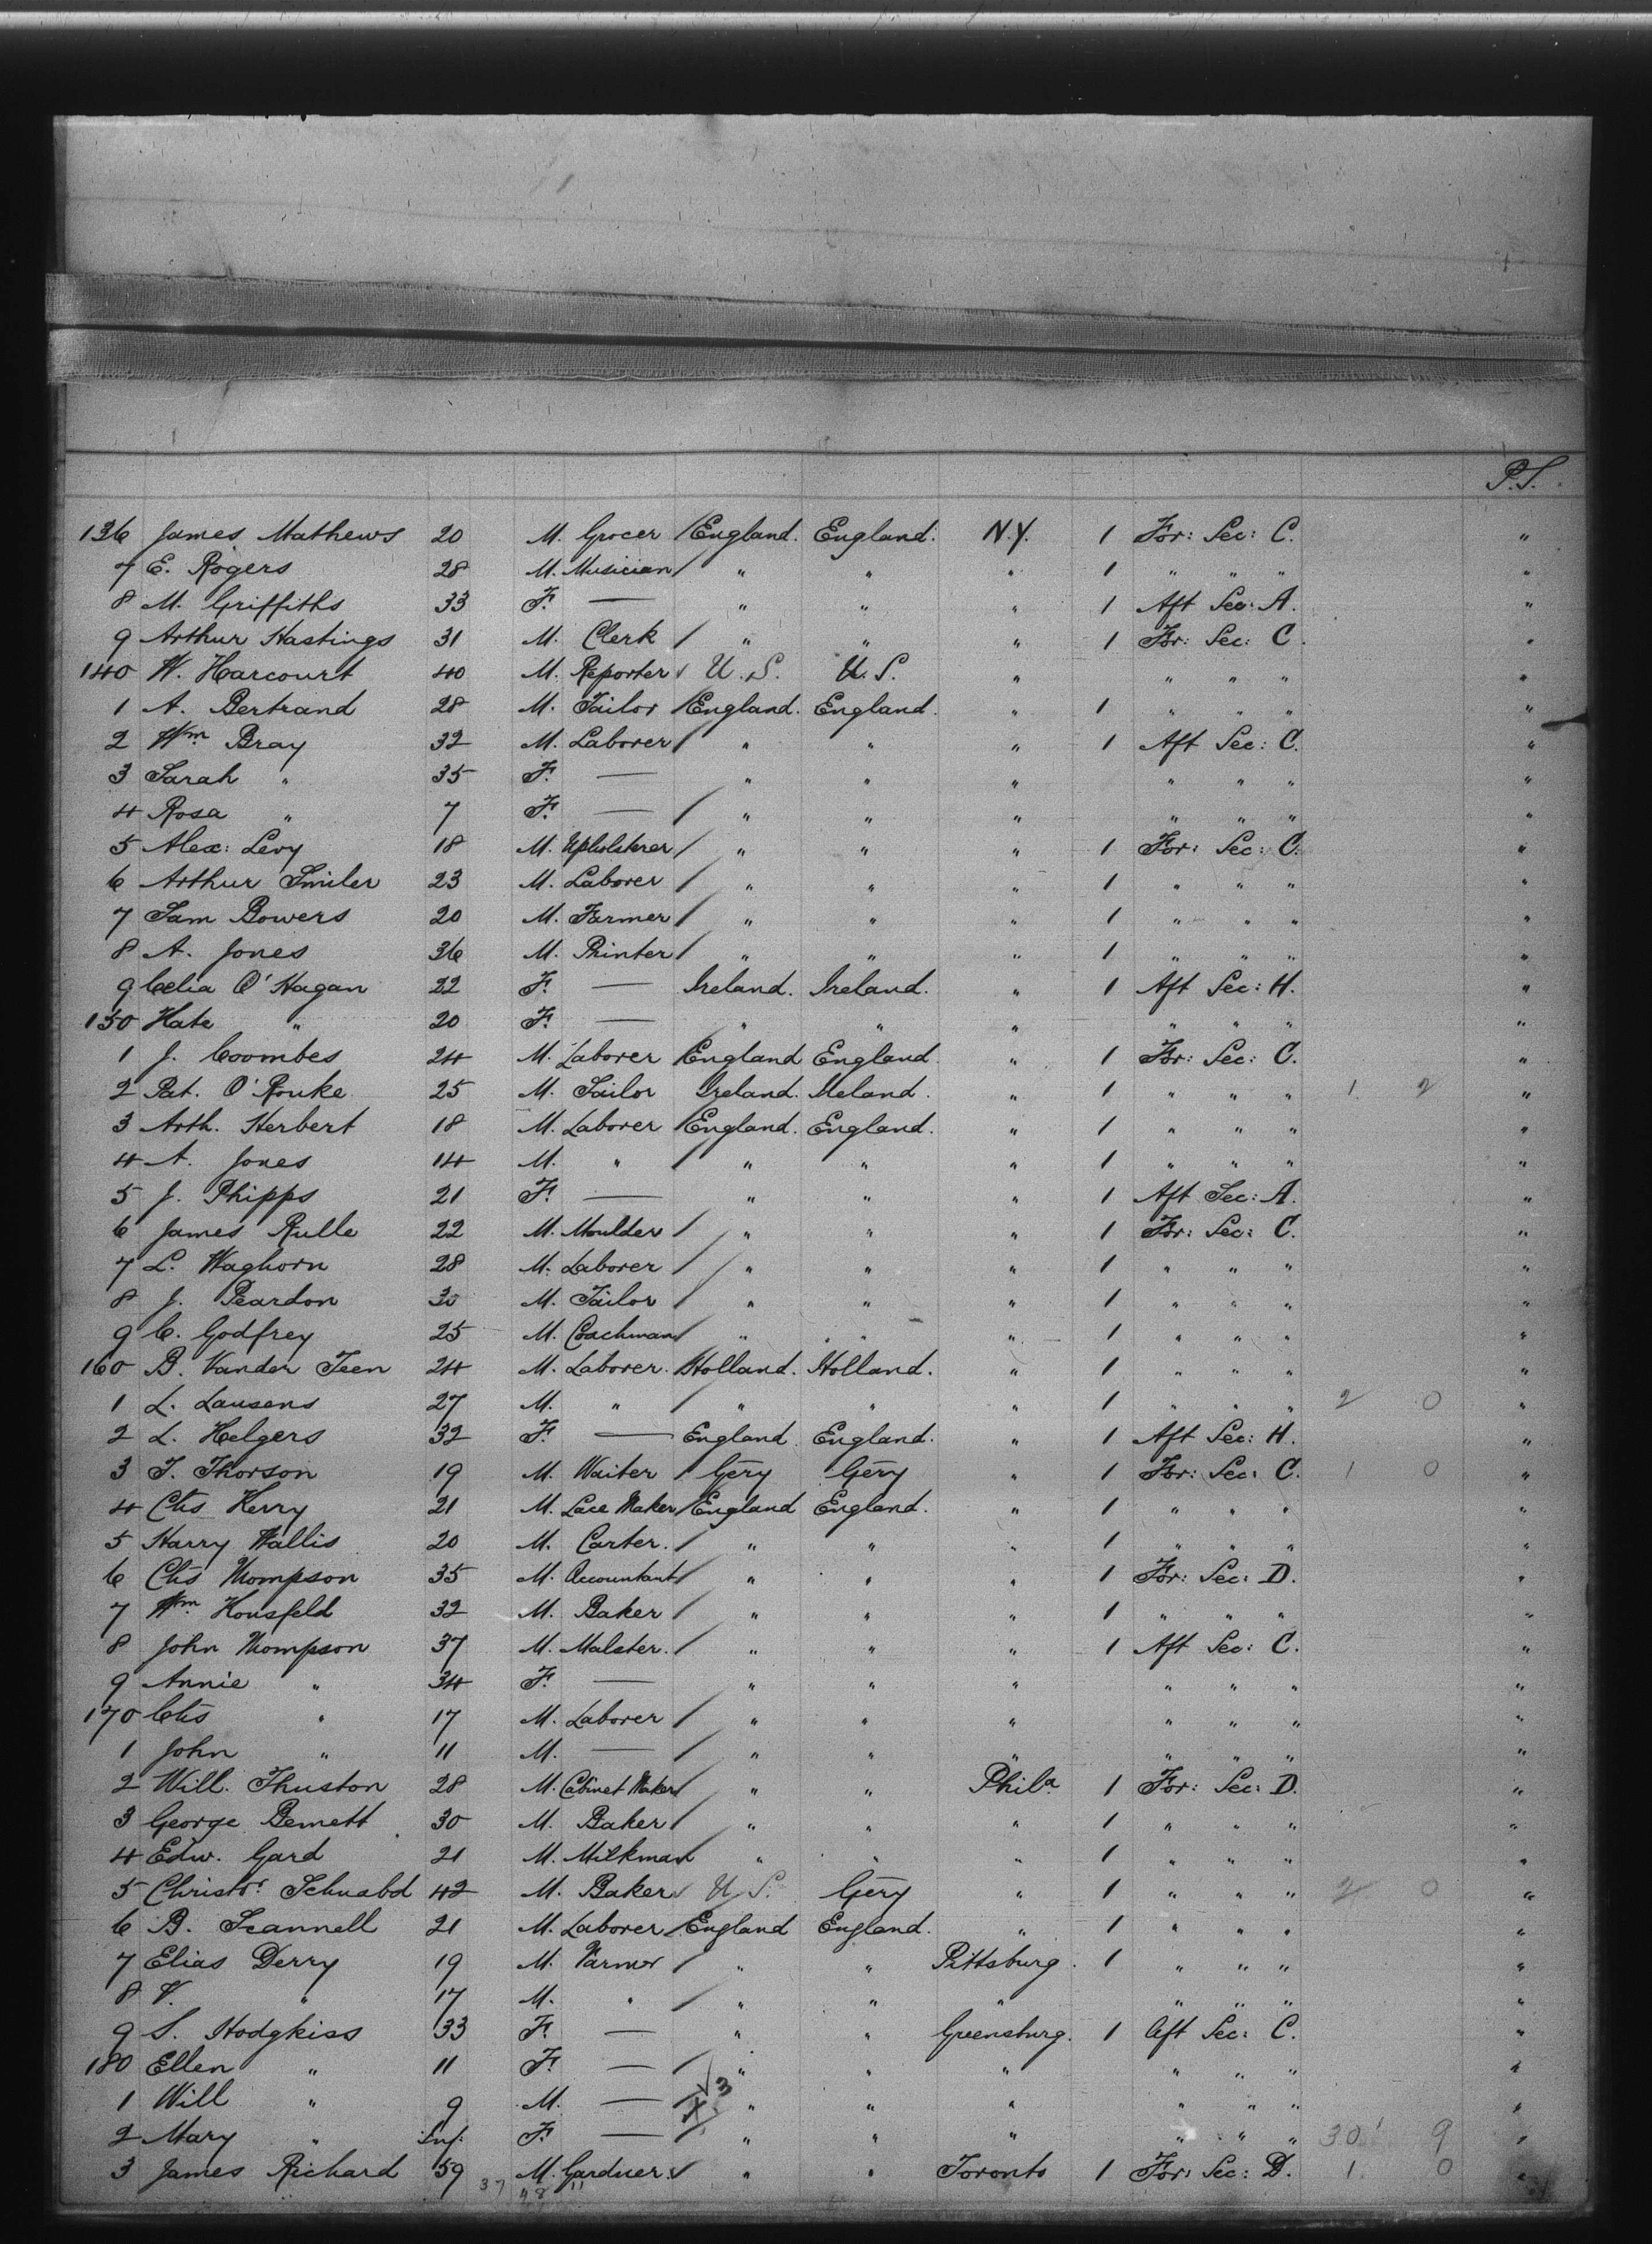 P.S.
136 James Mathews 20 M. Grocer / England. England. N.Y. 1 For: Sec: C. "
7 E. Rogers 28 M. Musician / " " " 1 " " " "
8 M. Griffiths 33 F. — " " " 1 Aft Sec: A. "
9 Arthur Hastings 31 M. Clerk / " " " 1 For: Sec: C. "
140 W. Harcourt 40 M. Reporter U.S. U.S. " " " " "
1 A. Bertrand 28 M. Tailor / England. England. " 1 " " " "
2 Wm Bray 32 M. Laborer / " " " 1 Aft Sec: C. "
3 Sarah " 35 F. — " " " " " " "
4 Rosa " 7 F. — / " " " " " " "
5 Alex: Levy 18 M. Upholsterer / " " " 1 For: Sec: C. "
6 Arthur Smiler 23 M. Laborer / " " " 1 " " " "
7 Sam Bowers 20 M. Farmer / " " " 1 " " " "
8 A. Jones 36 M. Printer / " " " 1 " " " "
9 Celia O'Hagan 22 F. — Ireland. Ireland. " 1 Aft Sec: H. "
150 Kate " 20 F. — " " " " " " "
1 J. Coombes 24 M. Laborer / England England " 1 For: Sec: C. "
2 Pat. O'Rouke 25 M. Sailor Ireland. Ireland. " 1 " " " 1 2 "
3 Arth. Herbert 18 M. Laborer / England. England. " 1 " " " "
4 A. Jones 14 M. " / " " " 1 " " " "
5 J. Phipps 21 F. — " " " 1 Aft Sec: A. "
6 James Rulle 22 M. Moulder / " " " 1 For: Sec: C. "
7 L. Waghorn 28 M. Laborer / " " " 1 " " " "
8 J. Peardon 30 M. Tailor / " " " 1 " " " "
9 C. Godfrey 25 M. Coachman / " " " 1 " " " "
160 B. Vander Teen 24 M. Laborer. / Holland. Holland. " 1 " " " "
1 L. Lausens 27 M. " / " " " 1 " " " 2 0 "
2 L. Helgers 32 F. — England England. " 1 Aft Sec: H. "
3 T. Thorson 19 M. Waiter / Gery Gery " 1 For: Sec: C. 1 0 "
4 Chs Kerry 21 M. Lace Maker / England England. " 1 " " " "
5 Harry Wallis 20 M. Carter. / " " " 1 " " " "
6 Chs Thompson 35 M. Accountant / " " " 1 For: Sec: D. "
7 Wm Housfeld 32 M. Baker / " " " 1 " " " "
8 John Thompson 37 M. Malster. / " " " 1 Aft Sec: C. "
9 Annie " 34 F. — " " " " " " "
170 Chs " 17 M. Laborer / " " " " " " "
1 John " 11 M. — / " " " " " " "
2 Will. Thuston 28 M. Cabinet Maker / " " Phila 1 For: Sec: D. "
3 George Bennett 30 M. Baker / " " " 1 " " " "
4 Edw. Gard 21 M. Milkman " " " 1 " " " "
5 Christr. Schnabd 42 M. Baker U.S. Gery " 1 " " " 2 0 "
6 B. Scannell 21 M. Laborer / England England. " 1 " " " "
7 Elias Derry 19 M. Farmer / " " Pittsburg. 1 " " " "
8 V. " 17 M. " / " " " " " " "
9 S. Hodgkiss 33 F. — " " Greensburg. 1 Aft Sec: C. "
180 Ellen " 11 F. — / " " " " " " "
1 Will " 9 M. — / 3 " " " " " " "
2 Mary " Inf. F. — X " " " " " " 30 9 "
3 James Richard 59 M. Gardner. / " " Toronto 1 For: Sec: D. 1. 0 "
37 48 11